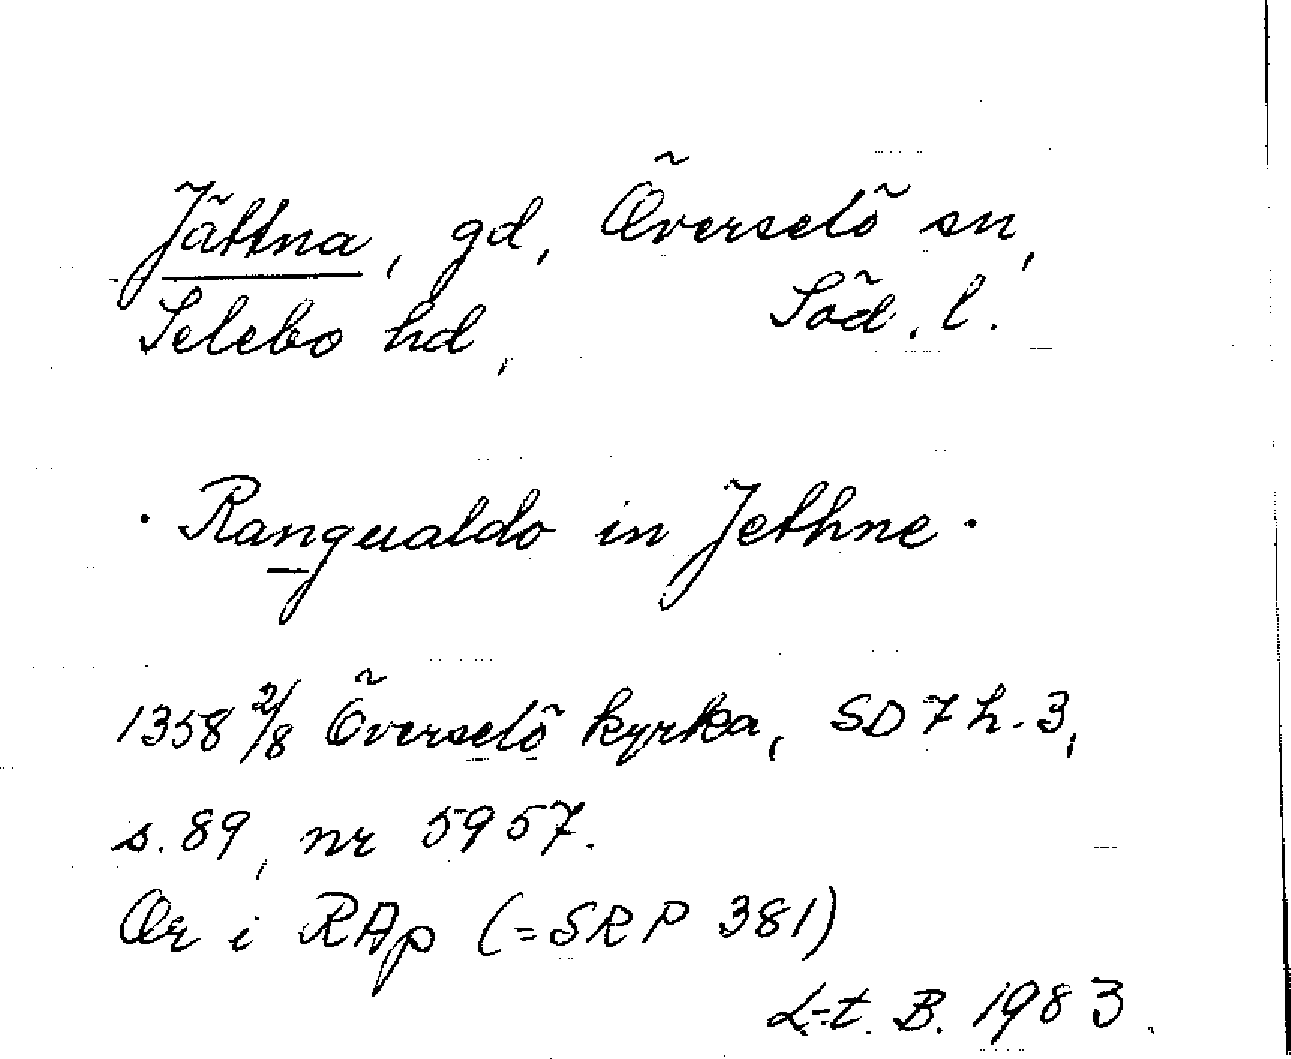 Jättna, gd, Överselö sn,
Selebo hd, Söd. l.
· Rangualdo in Jethne ·
1358 2/8 Överselö kyrka, SD 7 h. 3,
s. 89, nr 5957.
Or i RAp (=SRP 381)
L-t. B. 1983.